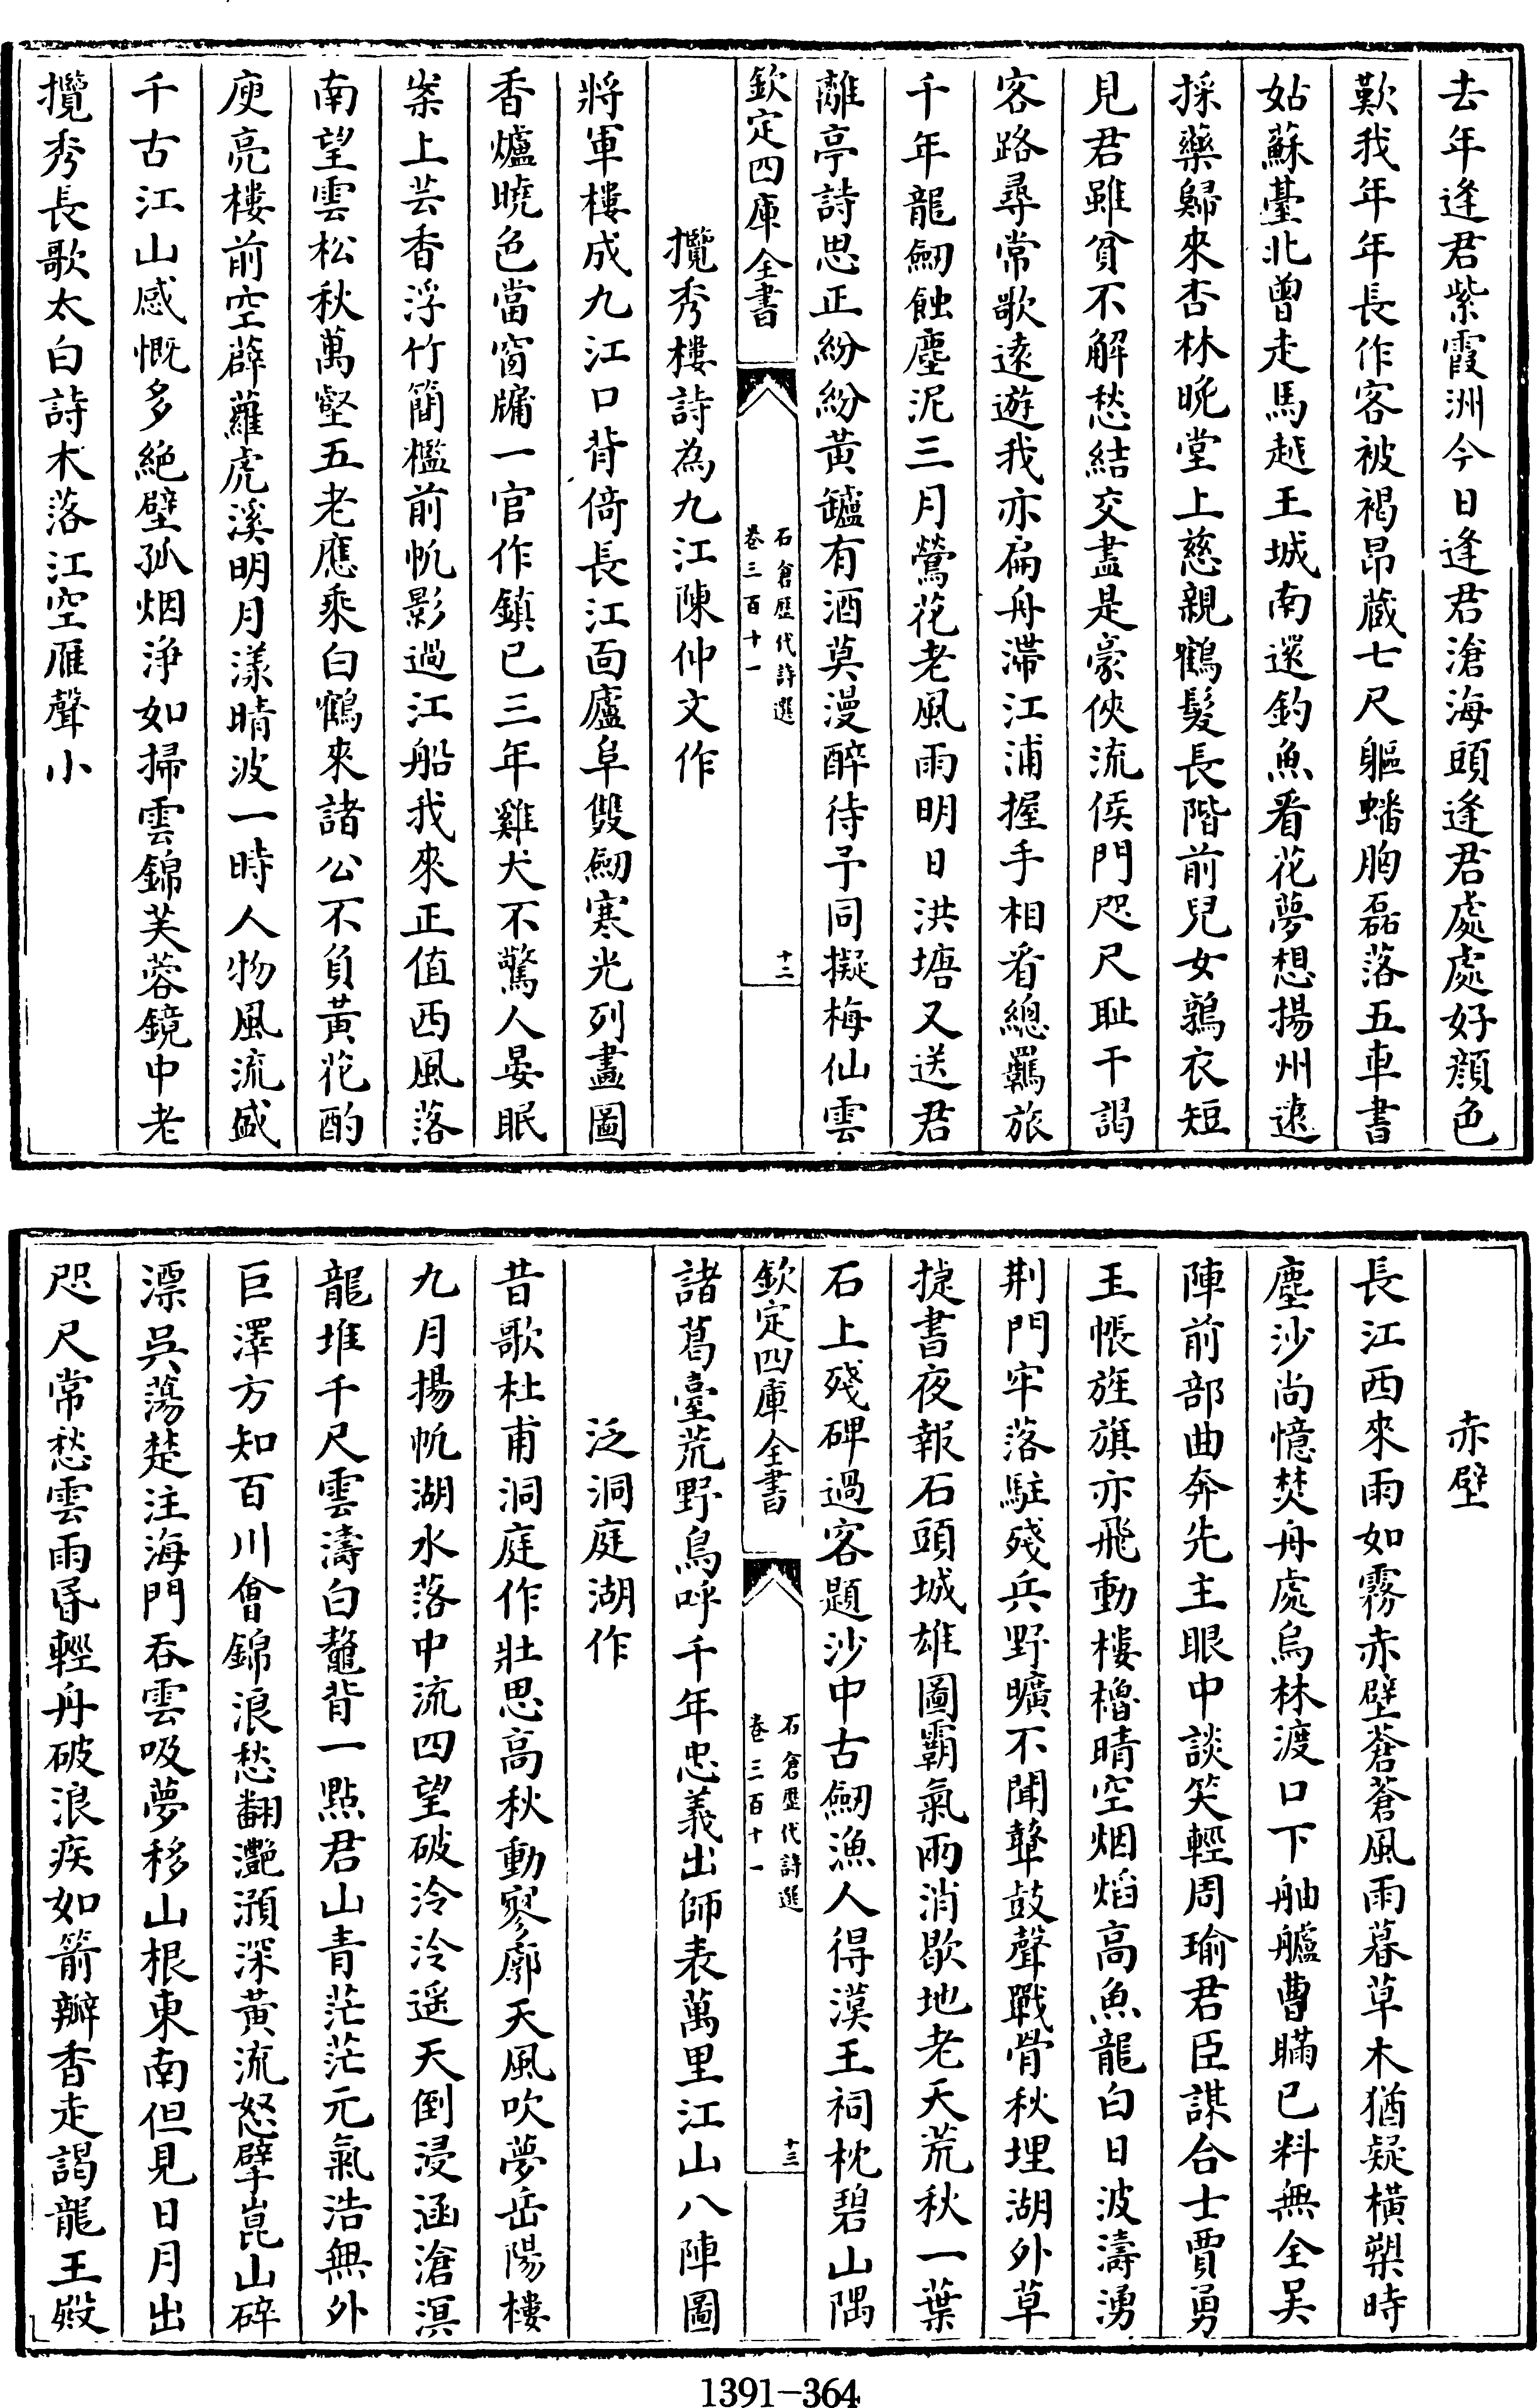 去年逢君紫霞洲今日逢君滄海頭逢君處處好顔色
歎我年年長作客被褐昂蔵七尺軀蟠胸磊落五車書
姑蘇臺北曾走馬越王城南還釣魚看花夢想揚州遠
採藥歸來杏林晩堂上慈親鶴髮長階前兒女鶉衣短
見君雖貧不解愁結交盡是豪俠流侯門咫尺耻干謁
客路尋常歌遠遊我亦扁舟滯江浦握手相看總羈旅
千年龍劒蝕塵泥三月鶯花老風雨明日洪塘又送君
離亭詩思正紛紛黃罏有酒莫漫醉待予同擬梅仙雲
欽定四庫全書
石倉歷代詩選
卷三百十一
十二
攬秀樓詩為九江陳仲文作
將軍樓成九江口背倚長江面廬阜雙劒寒光列畫圖
香爐曉色當窗牖一官作鎮已三年雞犬不驚人晏眠
案上芸香浮竹簡檻前帆影過江船我來正值西風落
南望雲松秋萬壑五老應乘白鶴來諸公不負黃花酌
庾亮樓前空薜蘿虎溪明月漾晴波一時人物風流盛
千古江山感慨多絶壁孤烟浄如掃雲錦芙蓉鏡中老
攬秀長歌太白詩木落江空雁聲小
赤壁
長江西來雨如霧赤壁蒼蒼風雨暮草木猶疑橫槊時
塵沙尚憶焚舟處烏林渡口下舳艫曹瞞已料無全吳
陣前部曲奔先主眼中談笑輕周瑜君臣謀合士賈勇
玉帳旌旗亦飛動樓櫓晴空烟熖高魚龍白日波濤湧
荆門牢落駐殘兵野曠不聞鼙鼓聲戰骨秋埋湖外草
捷書夜報石頭城雄圖霸氣兩消歇地老天荒秋一葉
石上殘碑過客題沙中古劒漁人得漢王祠枕碧山隅
欽定四庫全書
石倉歷代詩選
卷三百十一
十三
諸葛臺荒野鳥呼千年忠義出師表萬里江山八陣圖
泛洞庭湖作
昔歌杜甫洞庭作壯思高秋動寥廓天風吹夢岳陽樓
九月揚帆湖水落中流四望破泠泠遥天倒浸涵滄溟
龍堆千尺雲濤白鼇背一點君山青茫茫元氣浩無外
巨澤方知百川會錦浪愁翻灔澦深黃流怒擘崑山碎
漂吳蕩楚注海門吞雲吸夢移山根東南但見日月出
咫尺常愁雲雨昏輕舟破浪疾如箭瓣香走謁龍王殿
1391-364